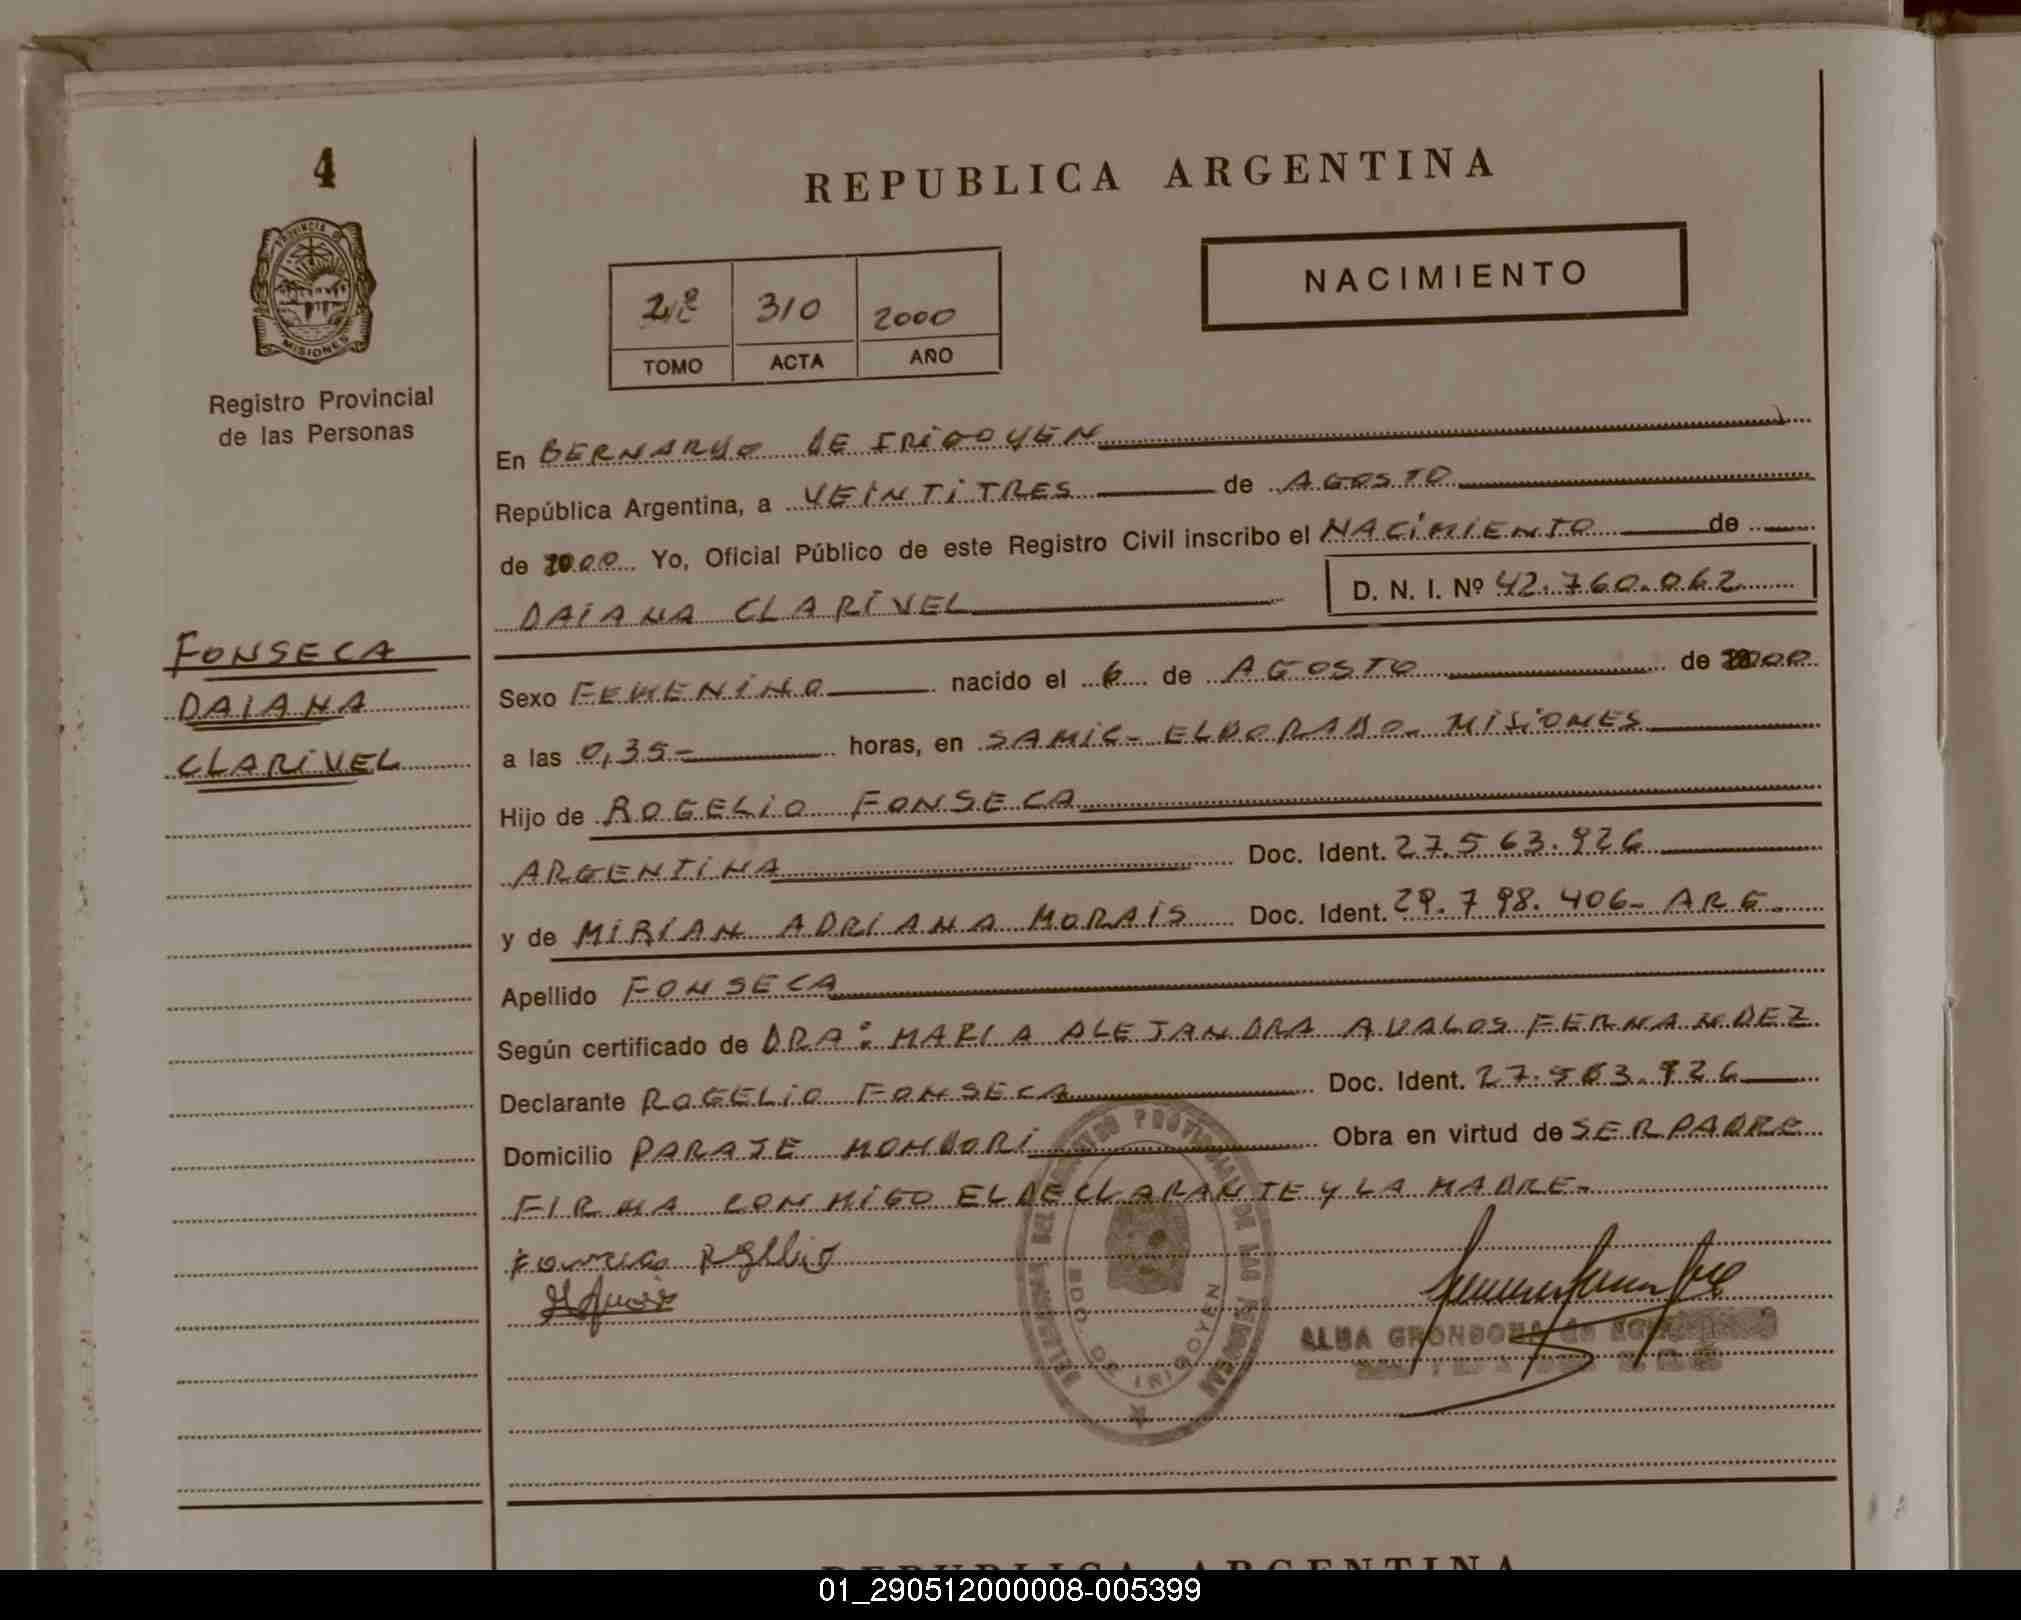 4
REPUBLICA ARGENTINA
PROVINCIA DE
MISIONES
Registro Provincial
de las Personas
310 2000
TOMO ACTA AÑO
NACIMIENTO
En BERNARDO DE IRIGOYEN
República Argentina, a VEINTITRES de AGOSTO
de 2000 Yo, Oficial Público de este Registro Civil inscribo el NACIMIENTO de
DAIANA CLARIVEL D. N. I. Nº 42.760.062
FONSECA
DAIANA
CLARIVEL
Sexo FEMENINO nacido el 6 de AGOSTO de 2000
a las 0,35- horas, en SAMIC- ELDORADO- MISIONES
Hijo de ROGELIO FONSECA
ARGENTINA Doc. Ident. 27.563.926
y de MIRIAN ADRIANA MORAIS Doc. Ident. 29.798.406- ARG.
Apellido FONSECA
Según certificado de DRA: MARIA ALEJANDRA AVALOS FERNANDEZ
Declarante ROGELIO FONSECA Doc. Ident. 27.563.926
Domicilio PARAJE MONDORI Obra en virtud de SER PADRE
FIRMA CONMIGO EL DECLARANTE Y LA MADRE-
Fonseca Rogelio
PROVINCIAL DE LAS PERSONAS
BDO. DE IRIGOYEN
ALBA GRONDONA de
REPUBLICA ARGENTINA
01_290512000008-005399